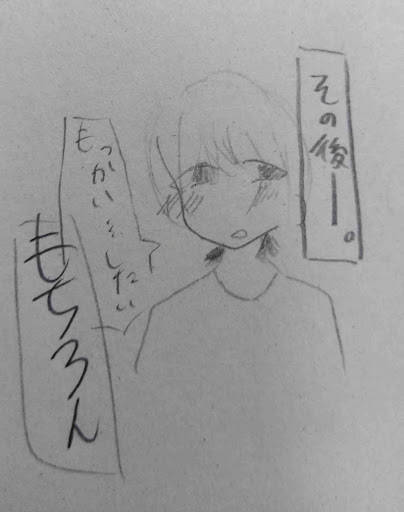 その後ー。
もっかい…したい
もちろん